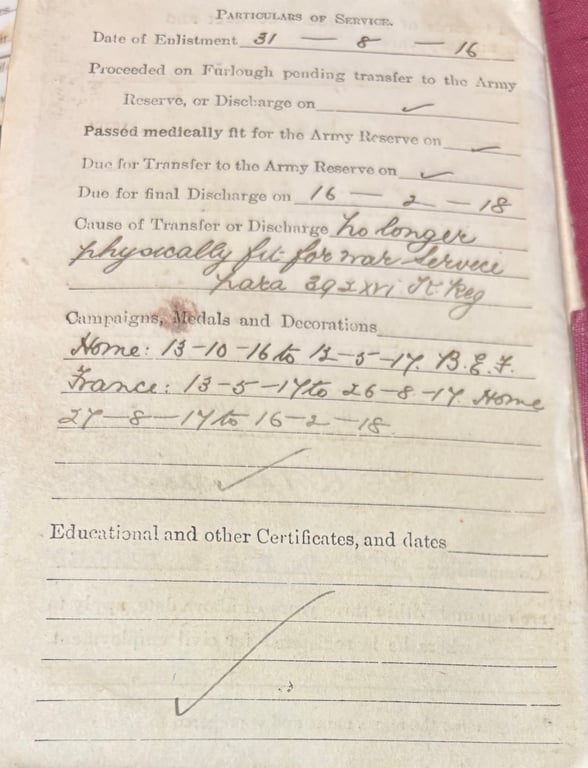 PARTICULARS OF SERVICE.
Date of Enlistment 31 — 8 — 16
Proceeded on Furlough pending transfer to the Army
Reserve, or Discharge on ✓
Passed medically fit for the Army Reserve on ✓
Due for Transfer to the Army Reserve on ✓
Due for final Discharge on 16 — 2 — 18
Cause of Transfer or Discharge No longer
physically fit for war service
para 392 xvi K Reg
Campaigns, Medals and Decorations
Home: 13-10-16 to 12-5-17. B.E.F.
France: 13-5-17 to 26-8-17 Home
27-8-17 to 16-2-18.
Educational and other Certificates, and dates